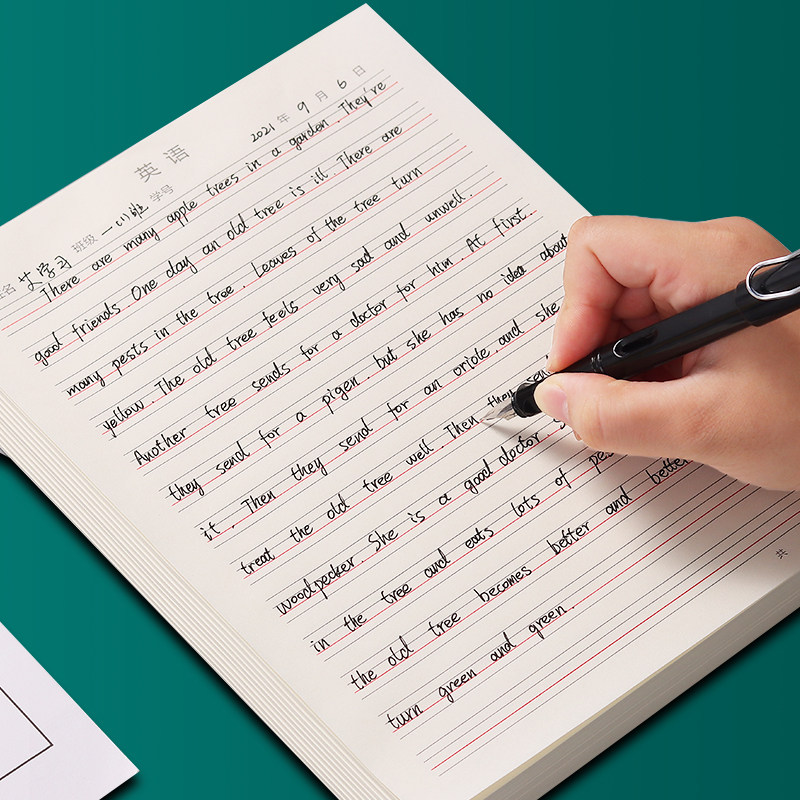 英语
2021年9月6日
名 艾学习 班级 一(1)班 学号
There are many apple trees in a garden. They're
good friends. One day an old tree is ill. There are
many pests in the tree. Leaves of the tree turn
yellow. The old tree feels very sad and unwell.
Another tree sends for a doctor for him. At first.
they send for a pigen. but she has no idea about
it. Then they send for an oriole. and she
treat the old tree well. Then they
woodpecker. She is a good doctor
in the tree and eats lots of
the old tree becomes better and better
turn green and green.
共